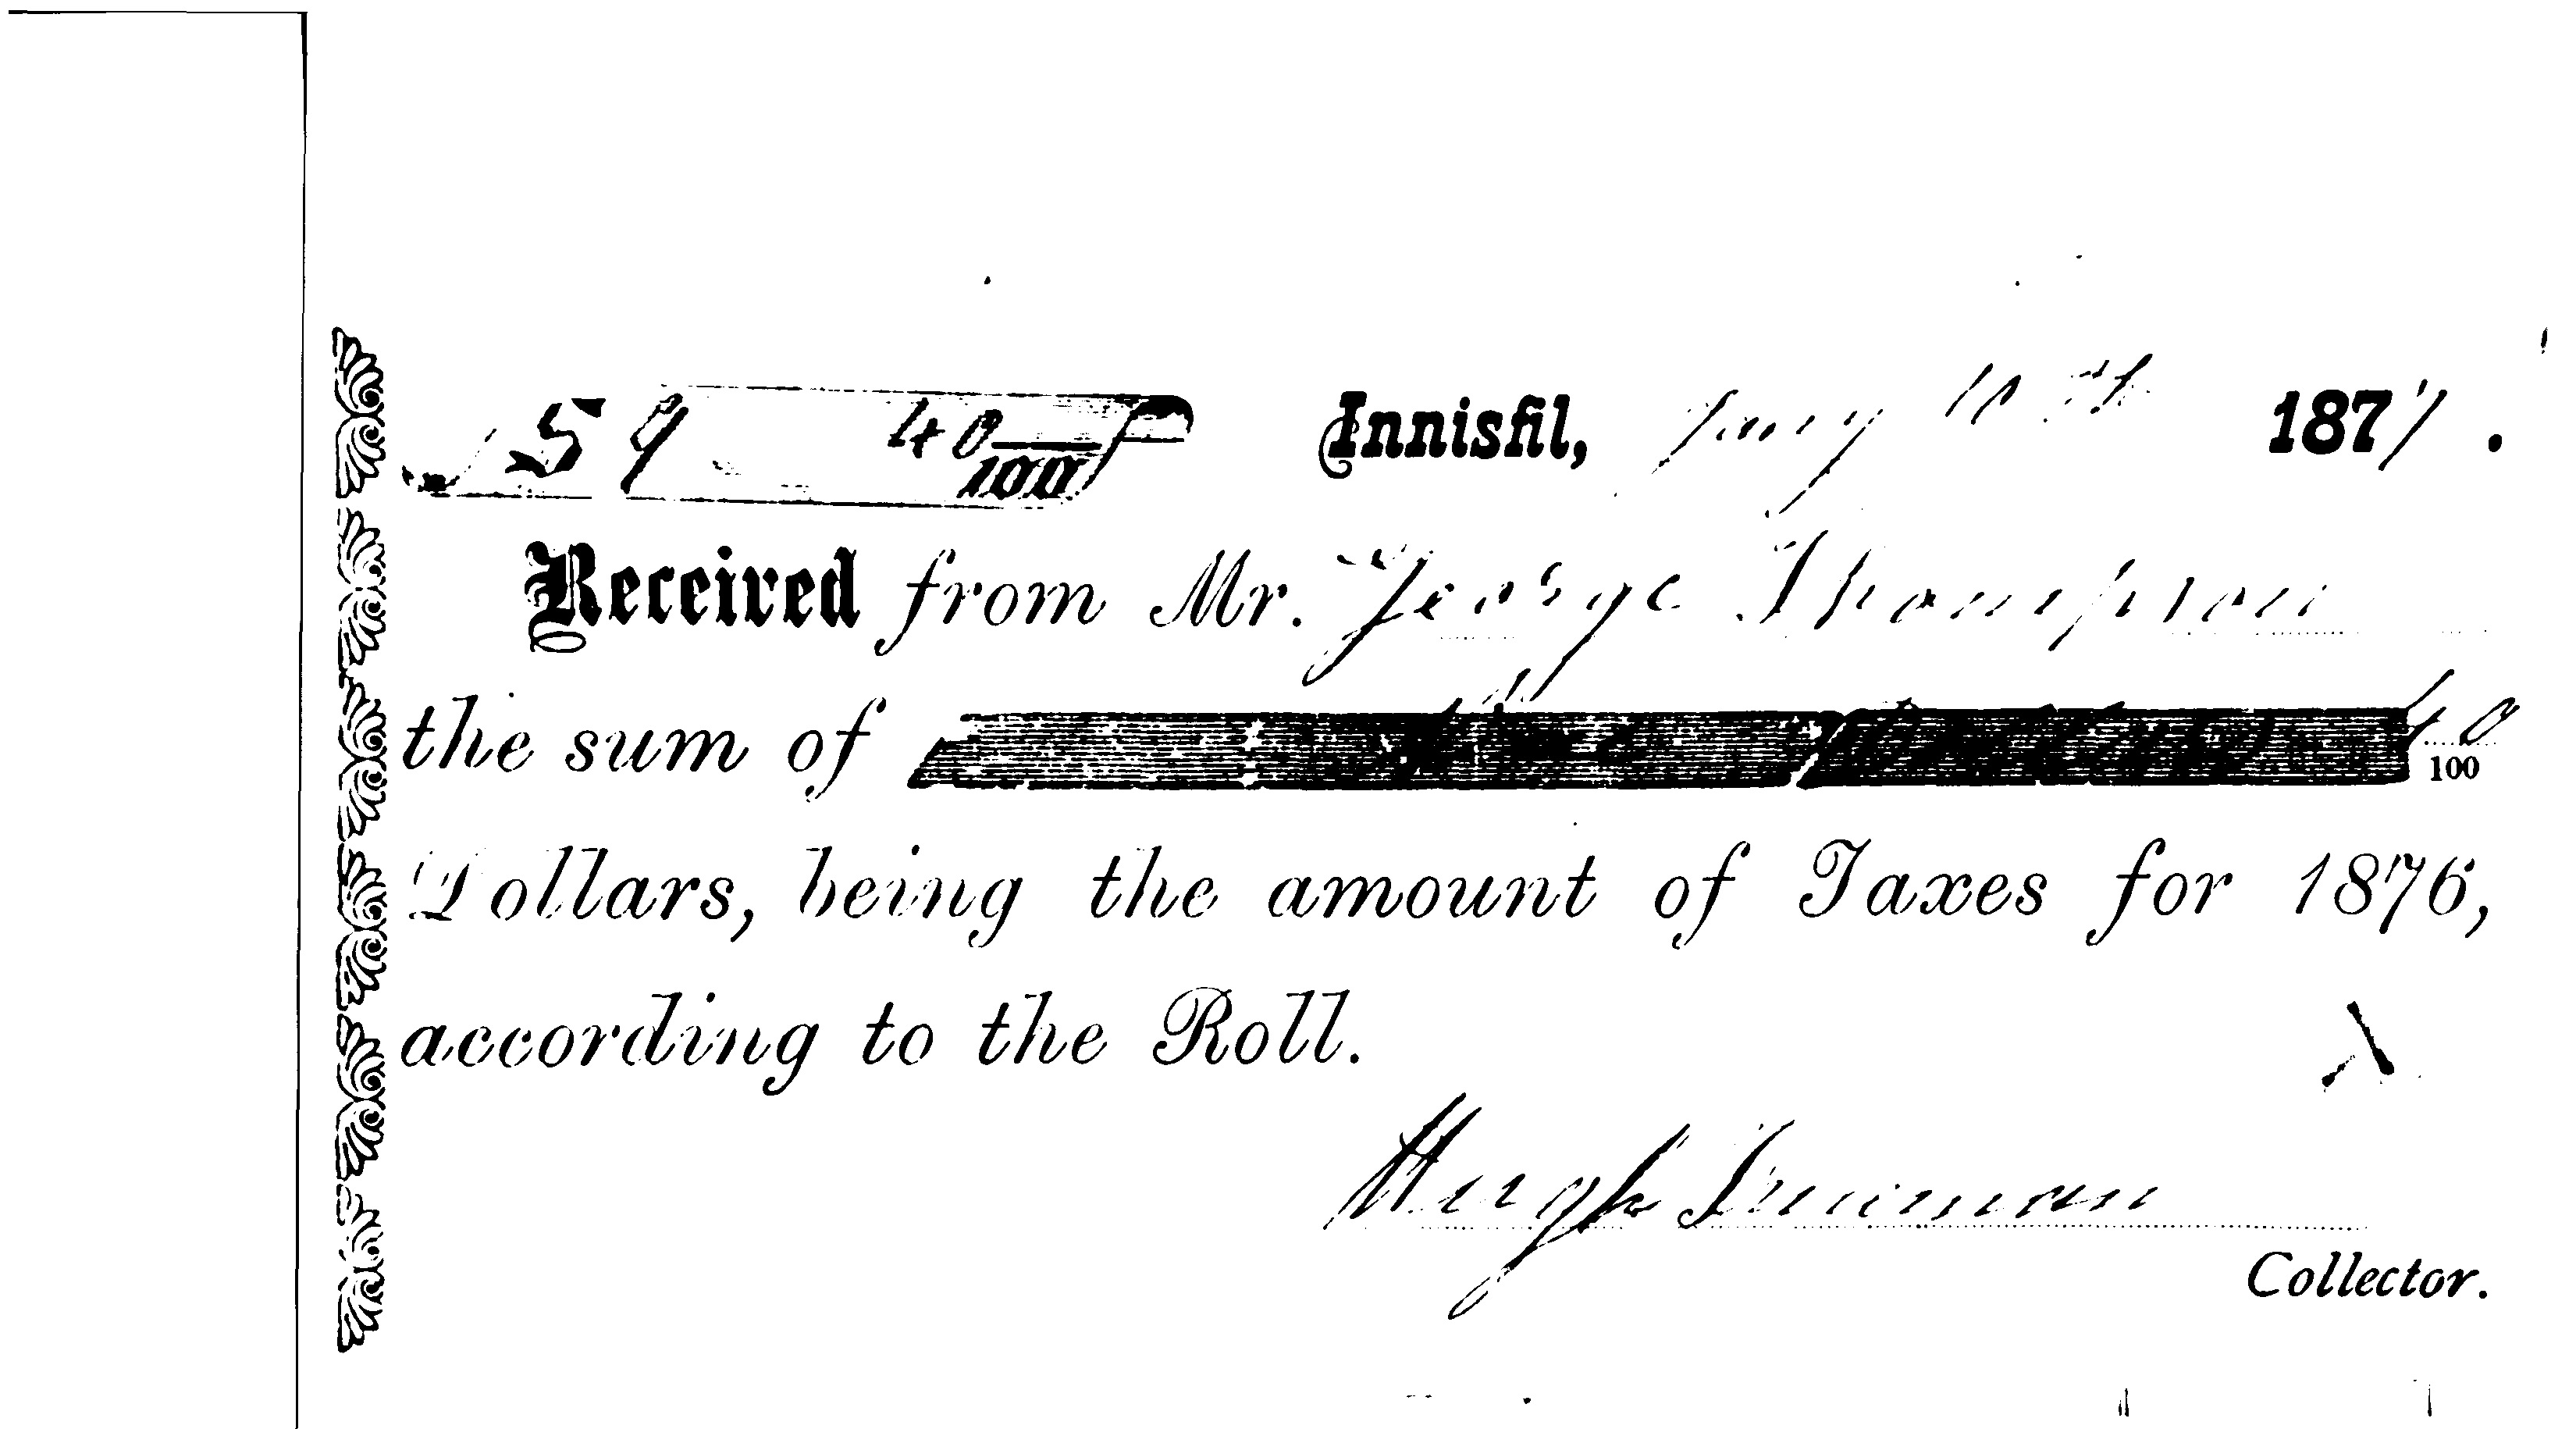 $59 40/100 Innisfil, Jany 10th 1877.
Received from Mr. George Thompson
the sum of 40/100
Dollars, being the amount of Taxes for 1876,
according to the Roll.
Hugh
Collector.